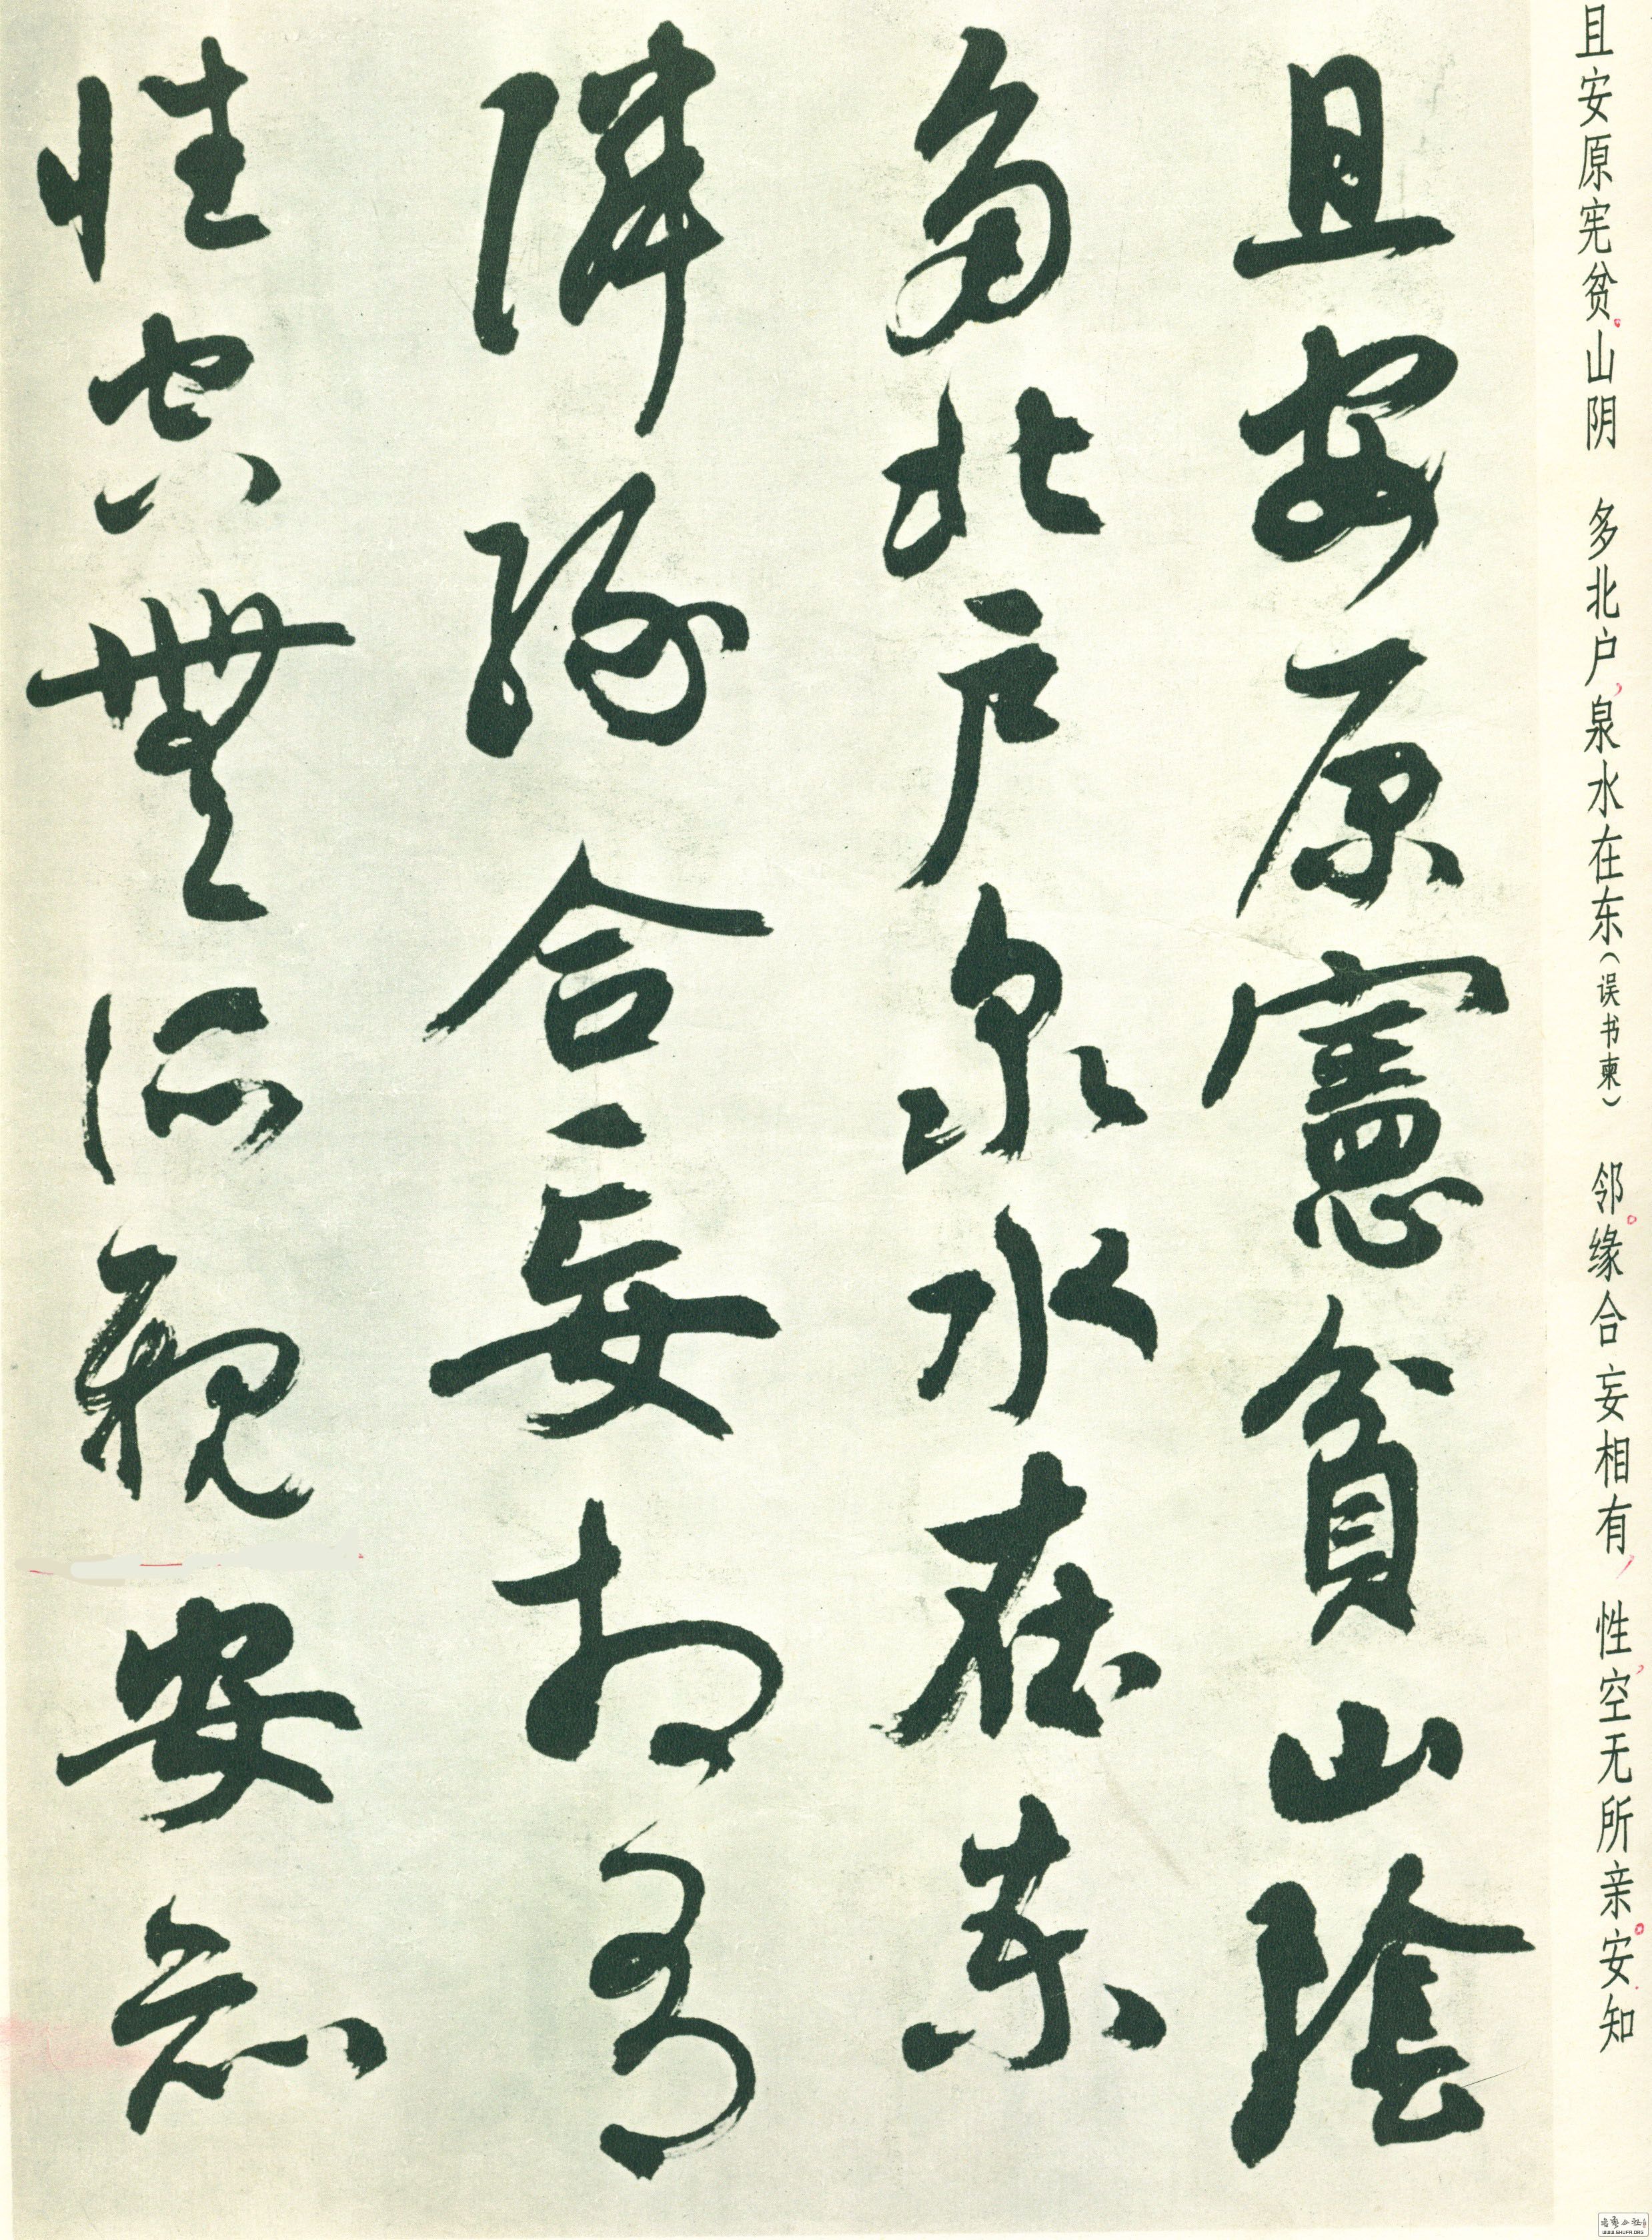 且安原宪贫。山阴 多北户，泉水在东（误书柬） 邻。缘合妄相有，性空无所亲。安知
且安原憲貧山陰
多北戶泉水在柬
隣緣合妄相有
性空無所親安知
WWW.SHUFR.ORG